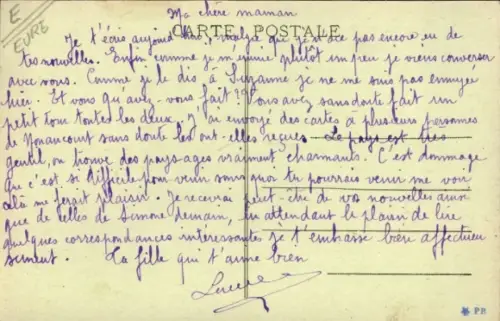 E
EURE
Ma chère maman
CARTE POSTALE
Je t'écris aujourd'hui, malgré que je n'ai pas encore eu de
tes nouvelles. Enfin comme je m'ennuie plutôt un peu je viens converser
avec vous. Comme je le dis à Suzanne je ne me suis pas ennuyée
hier. Et vous qu'avez-vous fait?? Vous avez sans doute fait un
petit tour toutes les deux. J'ai envoyé des cartes à plusieurs personnes
de Nonancourt sans doute les ont-elles reçues. Le pays est très
gentil, on trouve des pays-ages vraiment charmants. C'est dommage
que c'est si difficile pour venir sans quoi tu pourrais venir me voir
cela me ferait plaisir. Je recevrai peut-être de vos nouvelles ainsi
que de celles de Simone demain, en attendant le plaisir de lire
quelques correspondances intéressantes je t'embrasse bien affectueu
sement. Ta fille qui t'aime bien
Lucie
PB